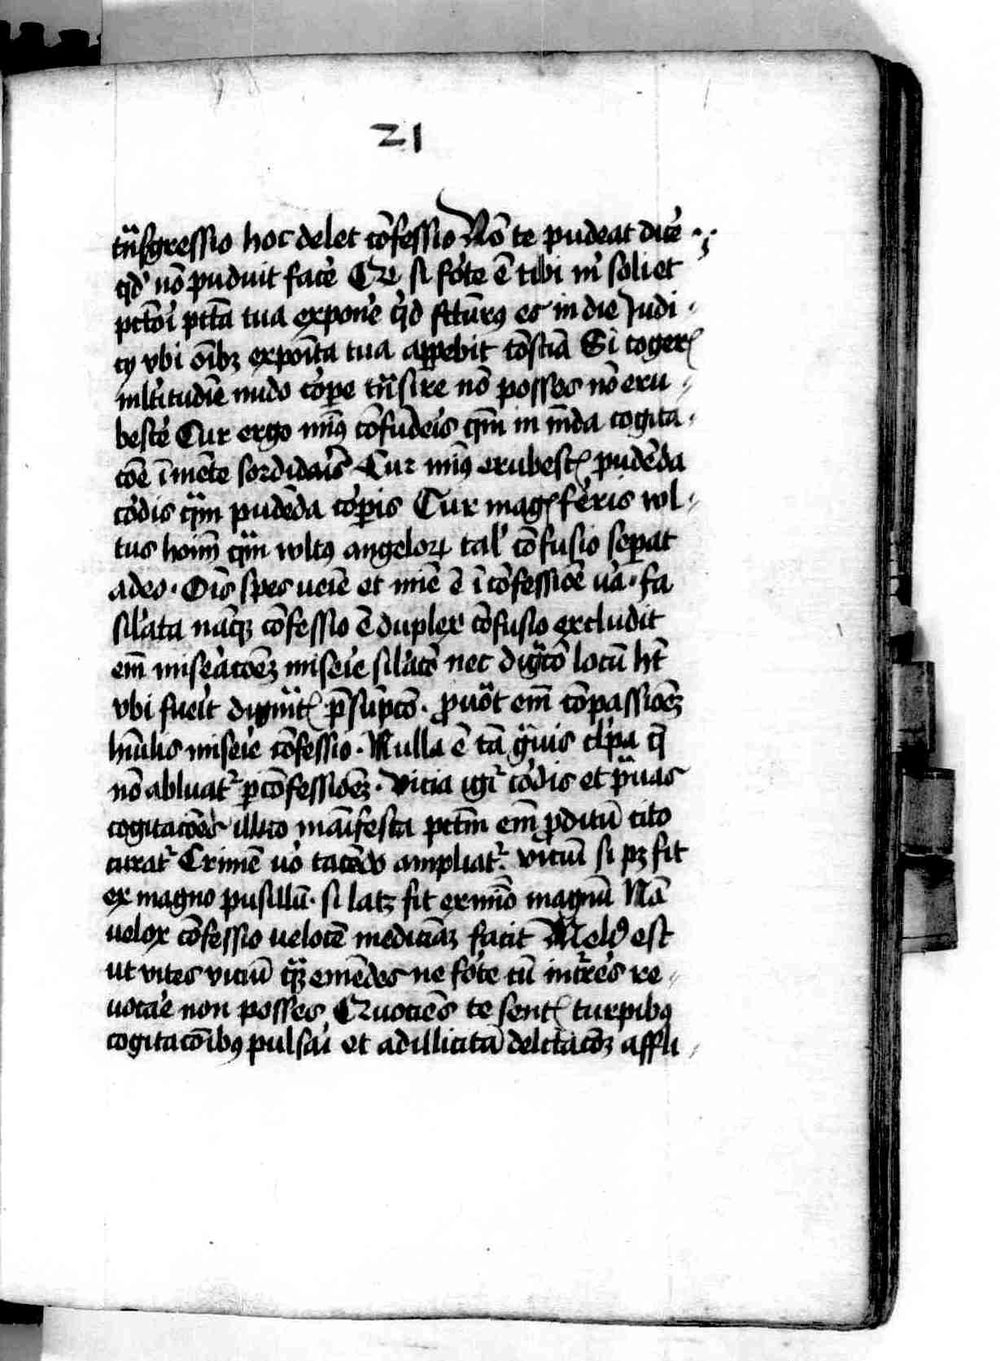 21
tn̄sgressio hoc delet cōfessio Nō te pudeat dicē
qd' nō puduit facē Qr si fo'te ē tibi mr̄ soli et
pctōi pctā tua expone qd fctūrꝰ es in die Judi
cij vbi oībꝫ expoīta tua appebit cōsciā Si cogeris
mltitudīe nudo cor̄pe tn̄sire nō posses nō eru
bescē Cur ergo minꝰ cōfūderis qm̄ in mūda cogita
cōe ī mēte sordidaris Cur minꝰ erubescis pudēda
cordis qm̄ pudēda corpis Cur magis feris vol
tus hoīm qm̄ voltꝰ angeloꝝ tal' cōfusio sepat
a deo · Oīs spes ueīe et mīe ē ī cōfessiōe ūa · fa
sil'ata nāqꝫ cōfessio ē duplex cōfusio excludit
em̄ miseracōeꝫ miserie sil'acō nec digcō locū hꝫ
vbi fuerit dignitatis p̄sūpcō · prouōt em̄ cōpassiōeꝫ
hūilis miserie cōfessio · Nulla ē tā gͣuis cl'pa q̄
nō abluatr̄ p cōfessiōeꝫ · Vicia igr̄ cordis et prauas
cogitacōes illico māifesta pctm̄ em̄ proditū cito
curatr̄ Crimē uo tacēdo ampliatr̄ · viciū si pꝫ fit
ex magno pusillū · si latꝫ fit ex mīo magnū Nā
uelox cōfessio uelocē medicināꝫ facit Meliꝰ est
ut vites viciū qͣꝫ emēdes ne forte cū incͥres re
uocare non posses Quociēs te sentis turpibꝰ
cogitacōibꝰ pulsari et ad illicitā delctacōꝫ affli